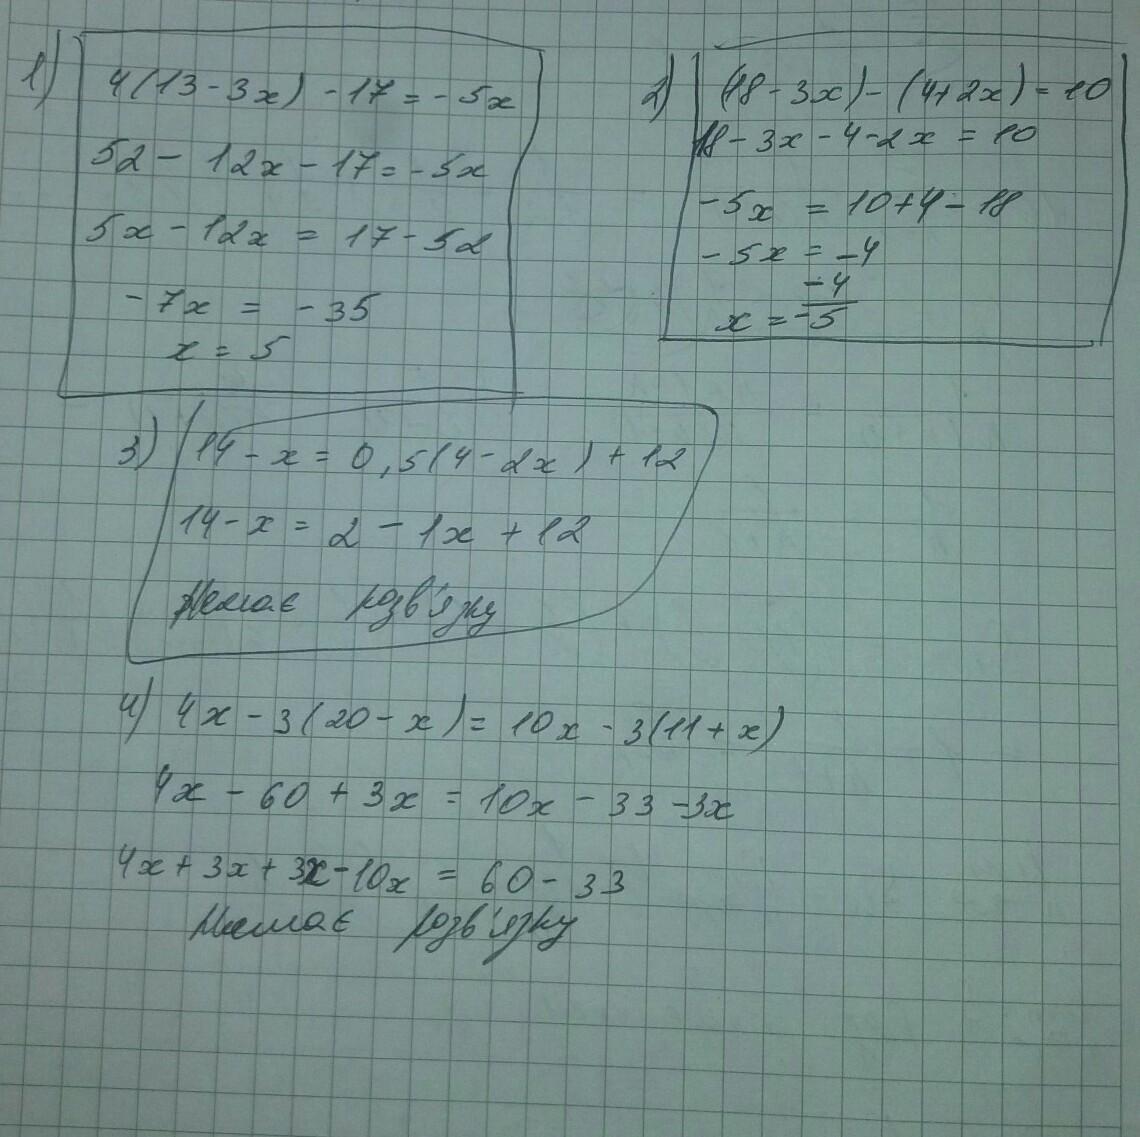 1)
4(13-3x)-17=-5x
52-12x-17=-5x
5x-12x=17-52
-7x=-35
x=5
2)
(18-3x)-(4+2x)=10
18-3x-4-2x=10
-5x=10+4-18
-5x=-4
-4
x=-5
3)
14-x=0,5(4-2x)+12
14-x=2-1x+12
Немає розв'язку
4) 4x-3(20-x)=10x-3(11+x)
4x-60+3x=10x-33-3x
4x+3x+3x-10x=60-33
Немає розв'язку